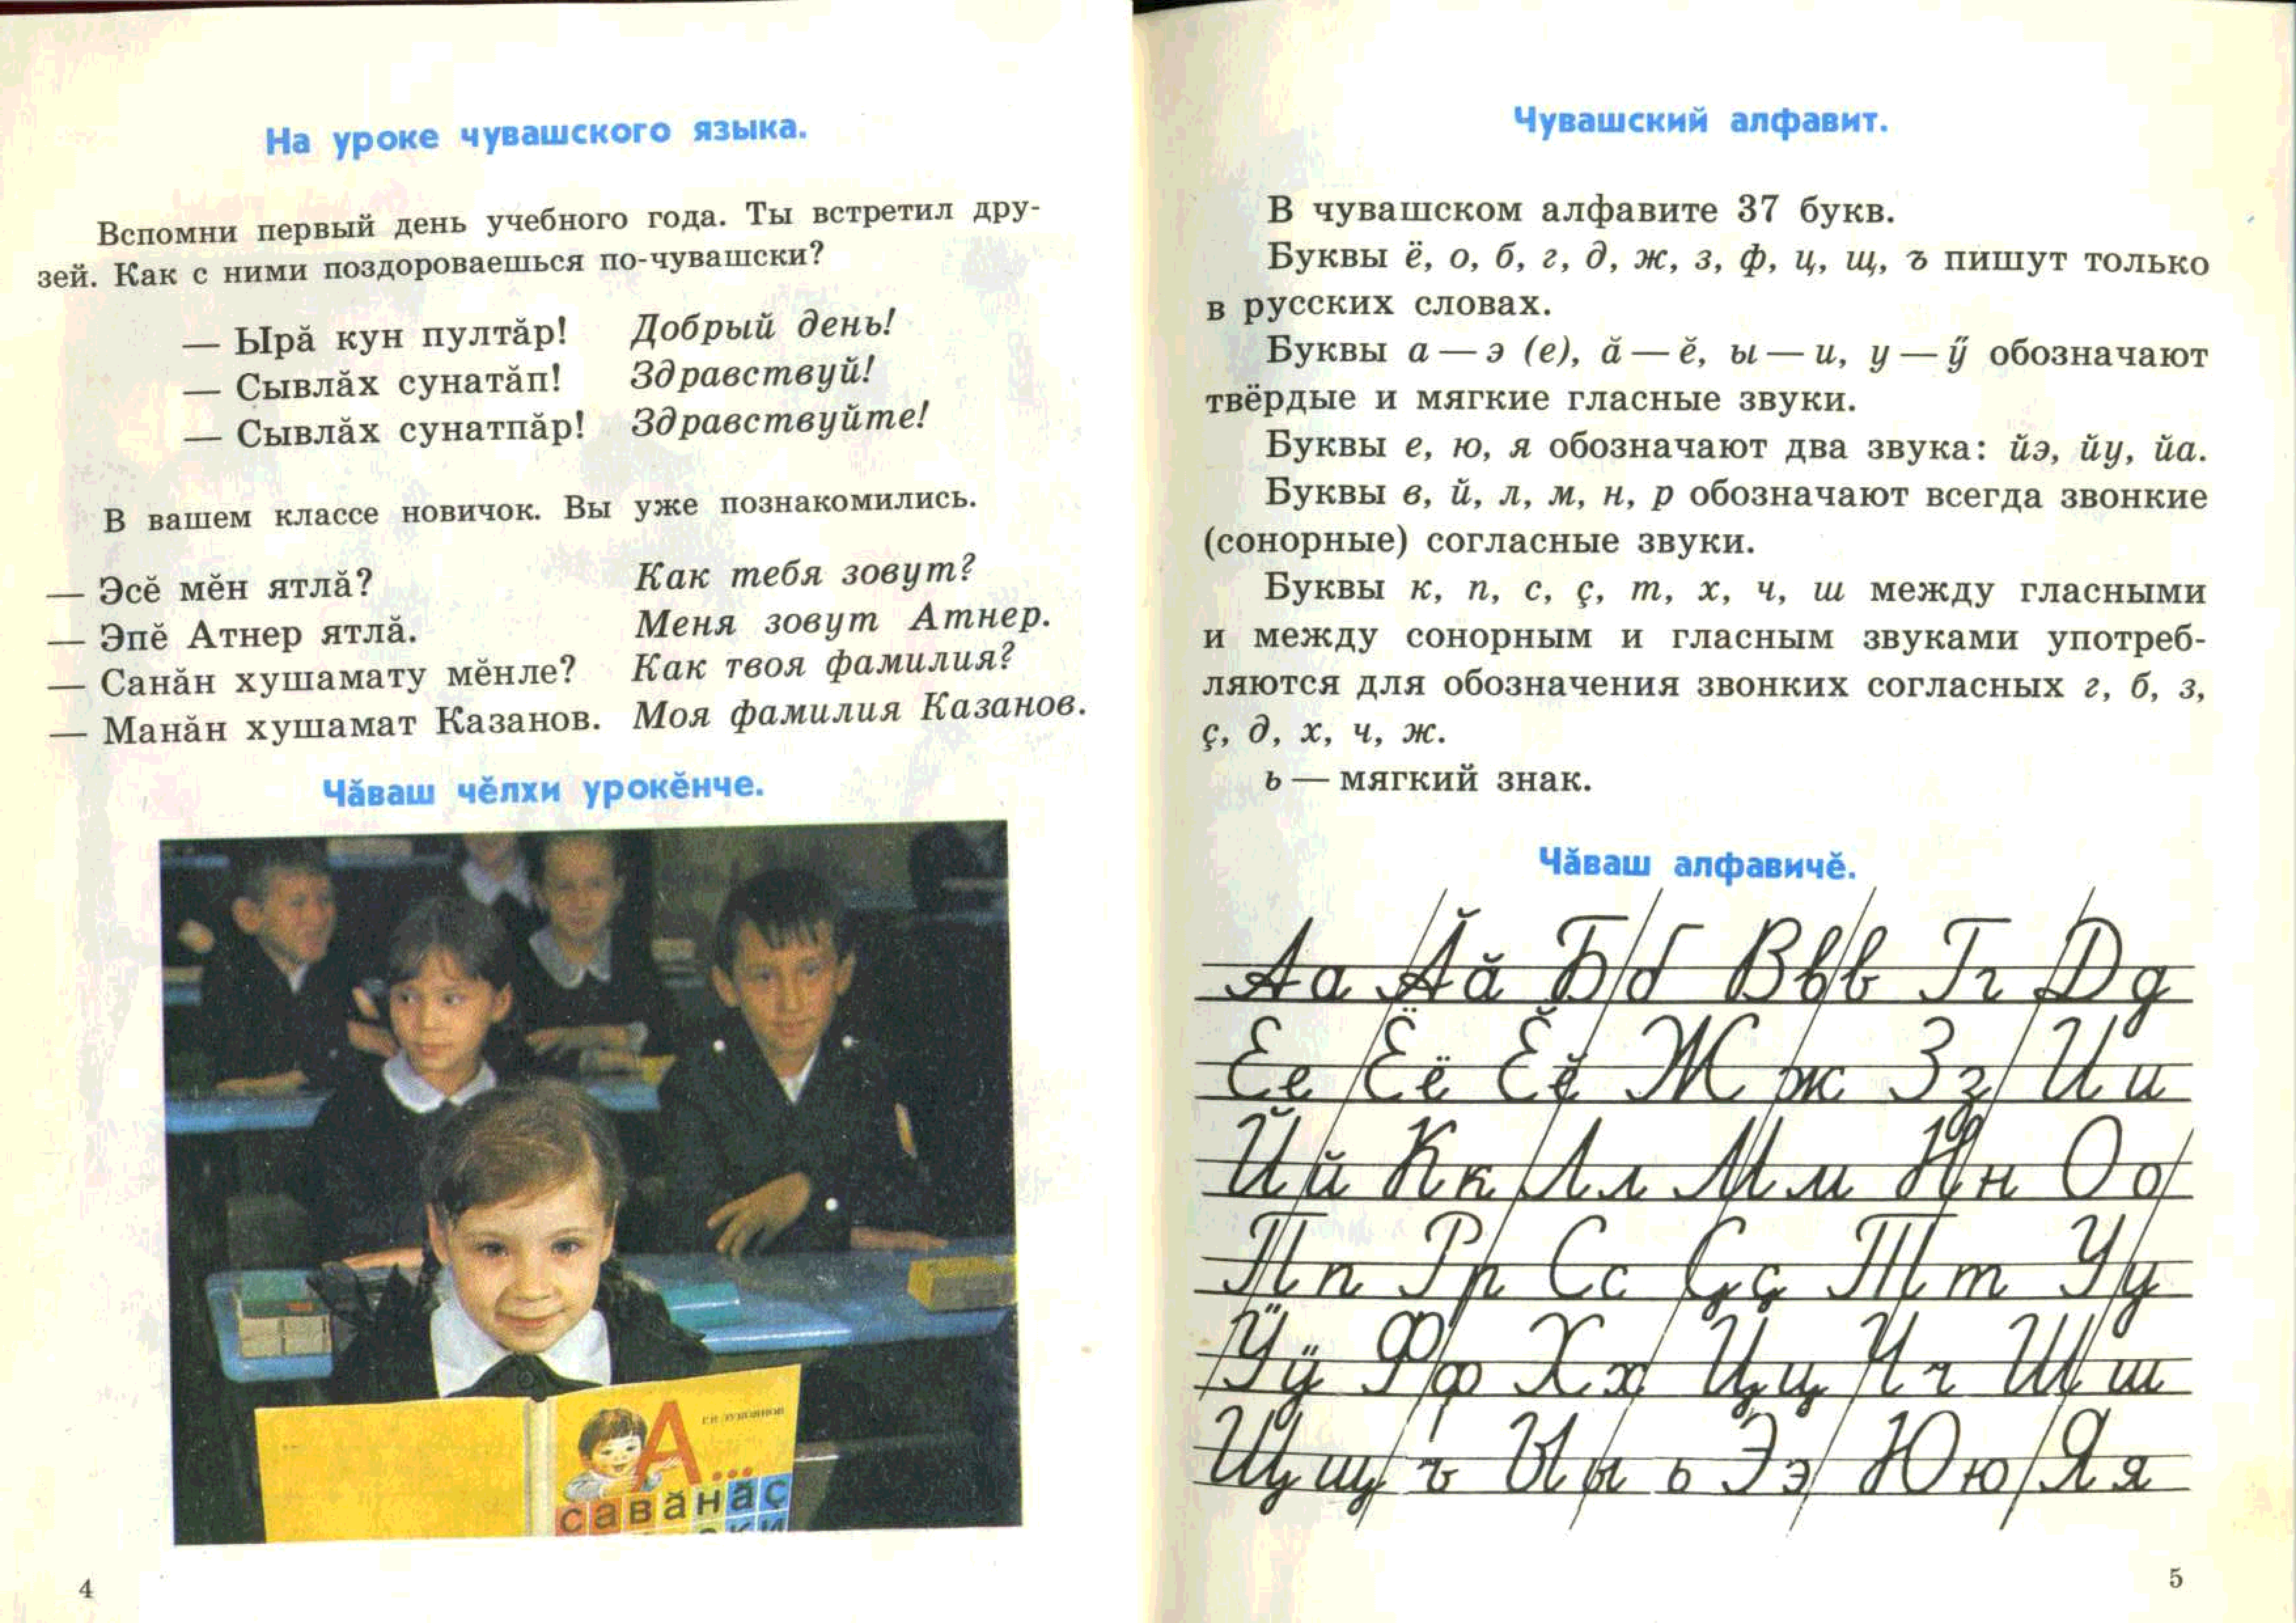 На уроке чувашского языка.
Вспомни первый день учебного года. Ты встретил дру-
зей. Как с ними поздороваешься по-чувашски?
— Ырӑ кун пултӑр! Добрый день!
— Сывлӑх сунатӑп! Здравствуй!
— Сывлӑх сунатпӑр! Здравствуйте!
В вашем классе новичок. Вы уже познакомились.
— Эсӗ мӗн ятлӑ? Как тебя зовут?
— Эпӗ Атнер ятлӑ. Меня зовут Атнер.
— Санӑн хушамату мӗнле? Как твоя фамилия?
— Манӑн хушамат Казанов. Моя фамилия Казанов.
Чӑваш чӗлхи урокӗнче.
А...
савӑнӑҫ
4
Чувашский алфавит.
В чувашском алфавите 37 букв.
Буквы ё, о, б, г, д, ж, з, ф, ц, щ, ъ пишут только
в русских словах.
Буквы а — э (е), ӑ — ӗ, ы — и, у — ӳ обозначают
твёрдые и мягкие гласные звуки.
Буквы е, ю, я обозначают два звука: йэ, йу, йа.
Буквы в, й, л, м, н, р обозначают всегда звонкие
(сонорные) согласные звуки.
Буквы к, п, с, ҫ, т, х, ч, ш между гласными
и между сонорным и гласным звуками употреб-
ляются для обозначения звонких согласных г, б, з,
ҫ, д, х, ч, ж.
ь — мягкий знак.
Чӑваш алфавичӗ.
Аа Ӑӑ Бб Ввв Гг Дд
Ее Ёё Ӗӗ Жж Зз Ии
Йй Кк Лл Мм Нн Оо
Пп Рр Сс Ҫҫ Тт Уу
Ӳӳ Фф Хх Цц Чч Шш
Щщ ъ Ыы ь Ээ Юю Яя
5